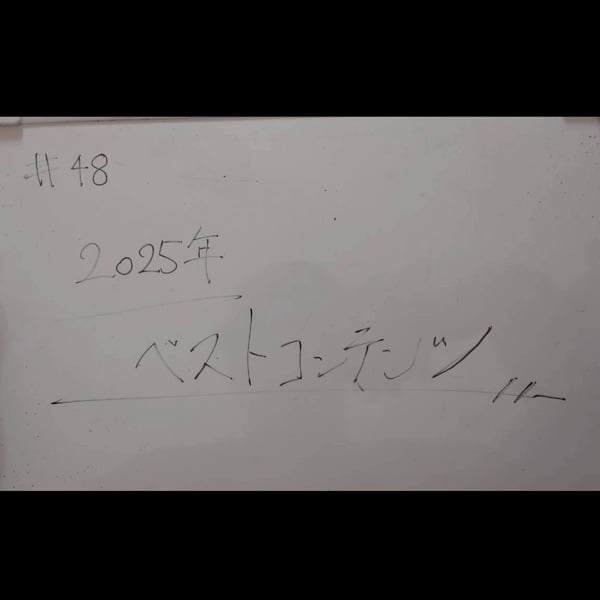 #48
2025年
ベストコンテンツ